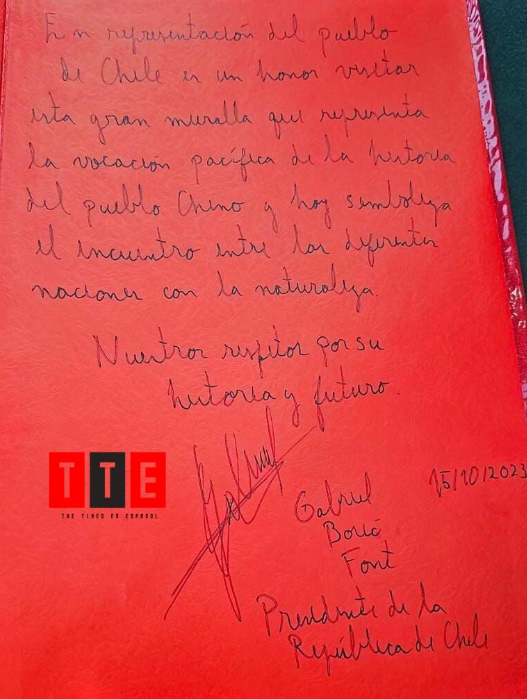 En representación del pueblo
de Chile es un honor visitar
esta gran muralla que representa
la vocación pacífica de la historia
del pueblo Chino y hoy simboliza
el encuentro entre las diferentes
naciones con la naturaleza.
Nuestros respetos por su
historia y futuro.
15/10/2023
Gabriel
Boric
Font
Presidente de la
República de Chile
TTE
THE TIMES EN ESPAÑOL